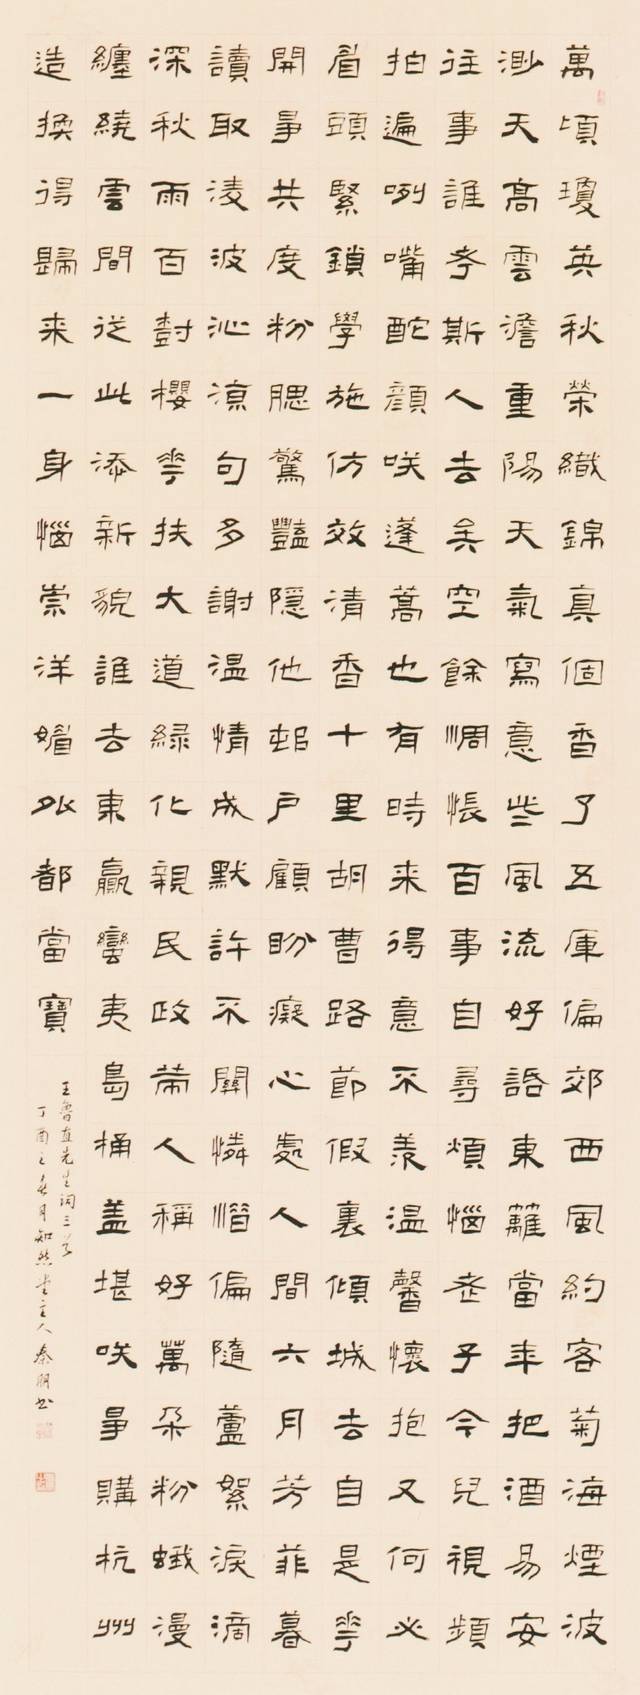 萬頃瓊英秋榮織錦真個香了五厙偏郊西風約客菊海煙波
渺天高雲澹重陽天氣寫意些風流好語東籬當年把酒易安
往事誰考斯人去矣空餘惆悵百事自尋煩惱老子今兒視頻
拍遍咧嘴酡顏咲蓬蒿也有時来得意不羨温馨懷抱又何必
眉頭緊鎖學施仿效清香十里胡曹路節假裏傾城去自是花
開爭共度粉腮驚豔隱他邨戶顧盼癡心處人間六月芳菲暮
讀取凌波沁凉句多謝温情成默許不關憐惜偏隨蘆絮淚滴
深秋雨百對櫻花扶大道緑化親民政策人稱好萬朵粉蛾漫
纏繞雲間從此添新貌誰去東贏蠻夷島桶盖堪咲爭購杭州
造換得歸来一身惱崇洋媚外都當寶
王魯直先生詞三首
丁酉之春月知然堂主人秦朋書